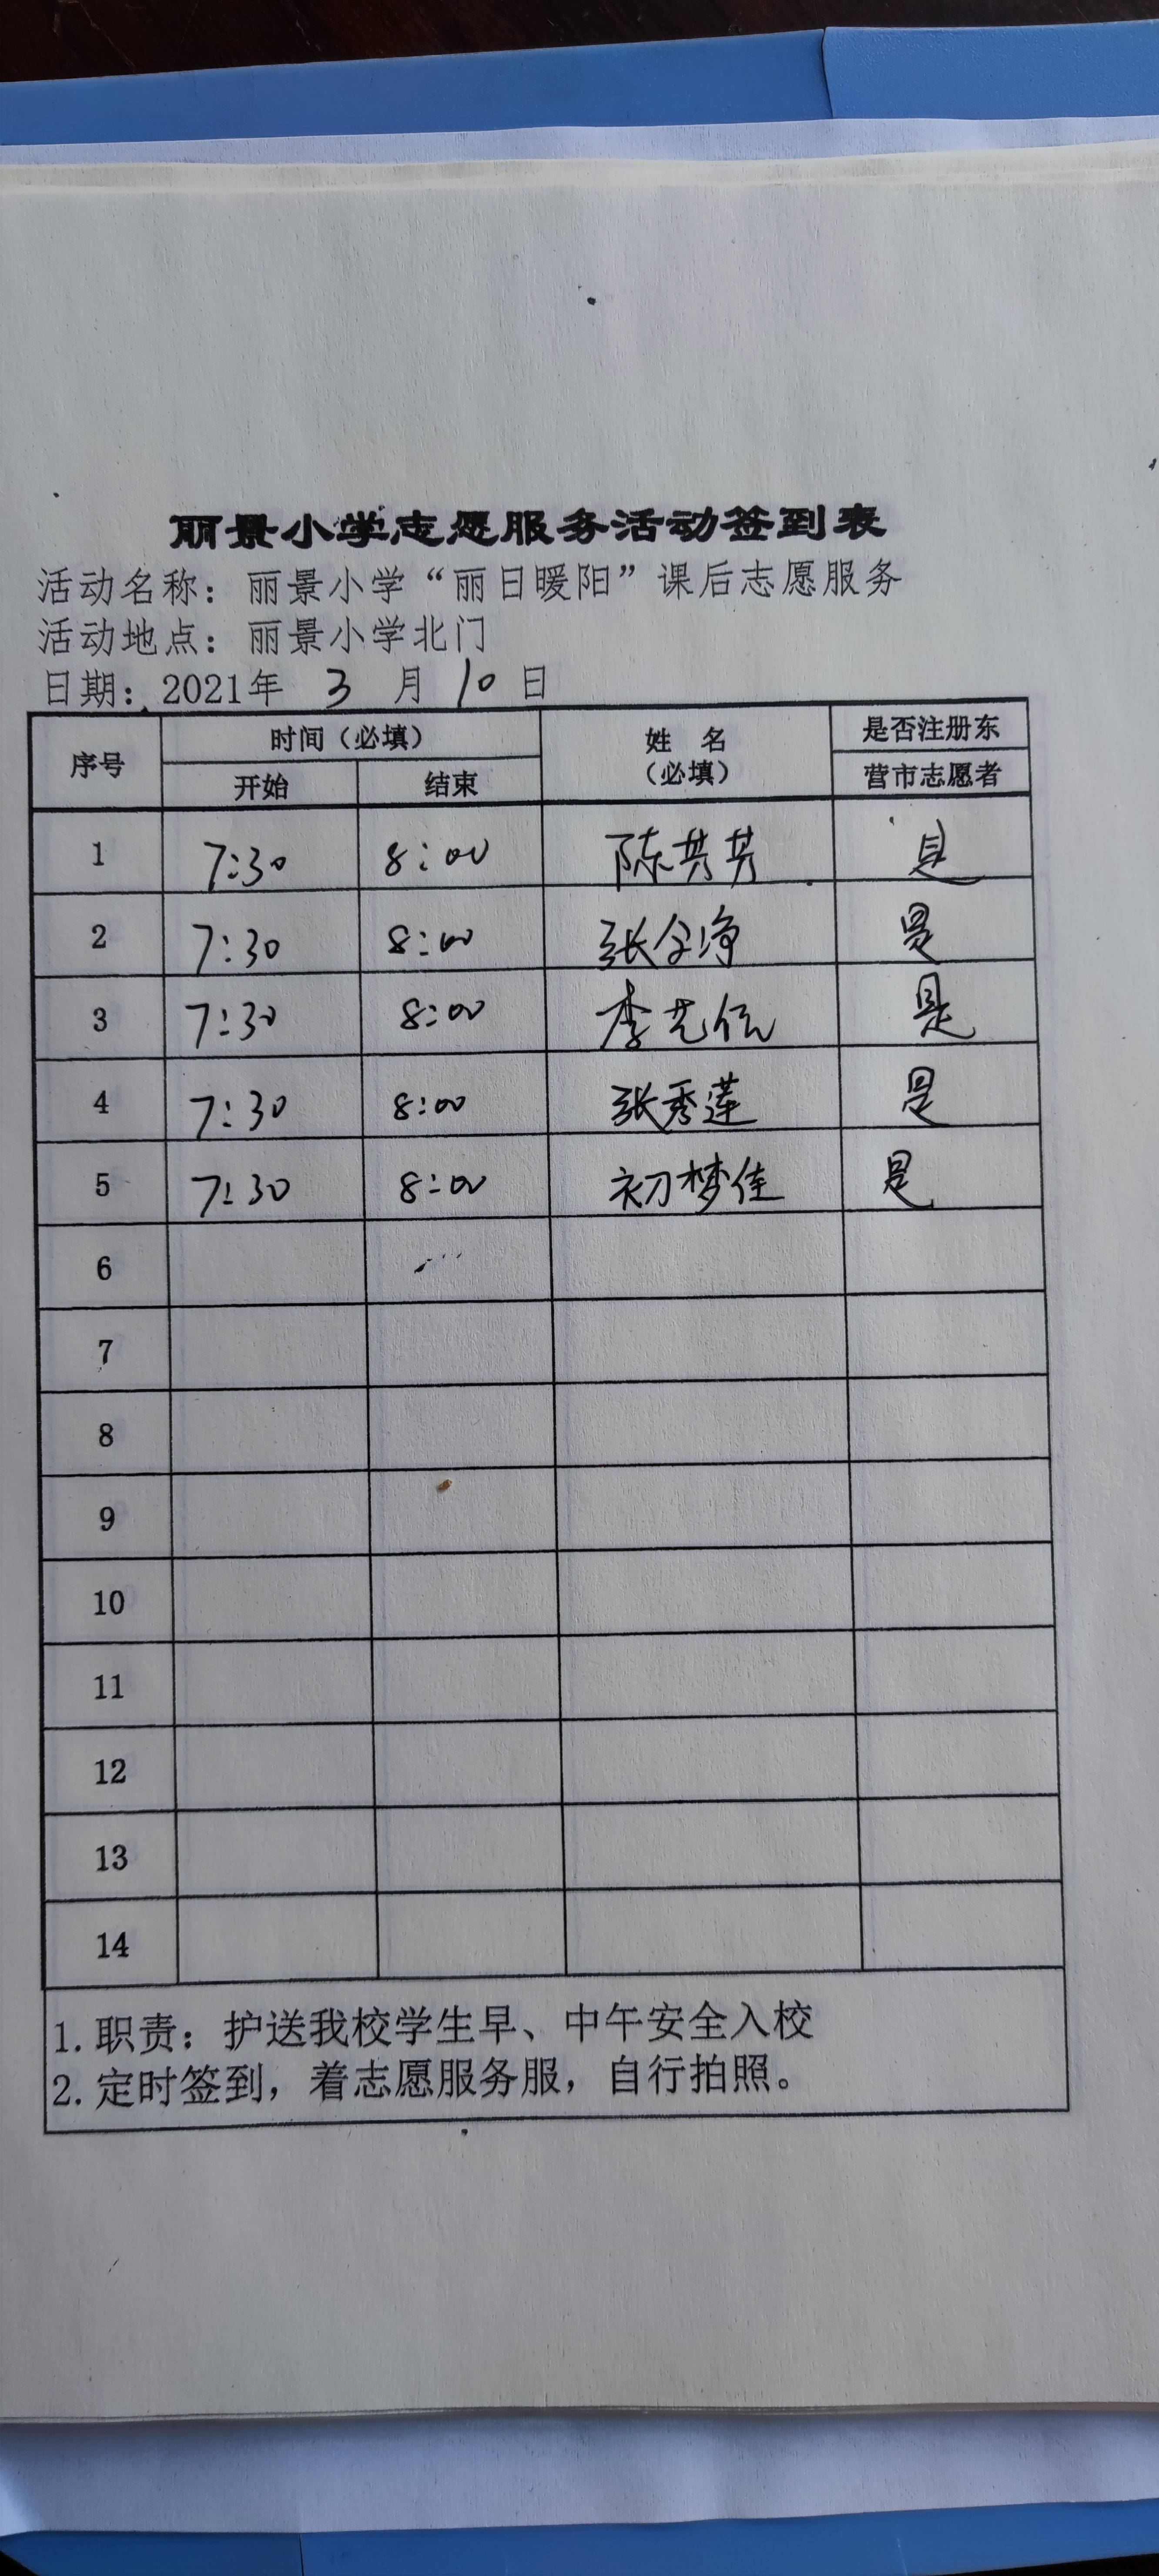 丽景小学志愿服务活动签到表
活动名称：丽景小学“丽日暖阳”课后志愿服务
活动地点：丽景小学北门
日期：2021年 3 月 10 日
序号 时间（必填） 姓 名（必填） 是否注册东营市志愿者
开始 结束
1 7:30 8:00 陈芳芳 是
2 7:30 8:00 张净 是
3 7:30 8:00 李艺 是
4 7:30 8:00 张秀莲 是
5 7:30 8:00 初梦佳 是
6
7
8
9
10
11
12
13
14
1.职责：护送我校学生早、中午安全入校
2.定时签到，着志愿服务服，自行拍照。